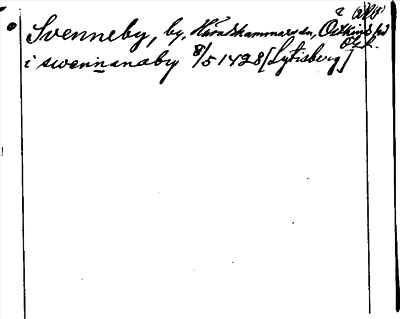 Svenneby, by, Häradshammars sn, Östkinds hd
Ög.
i swennanæby 8/5 1428 [Lytisberg]